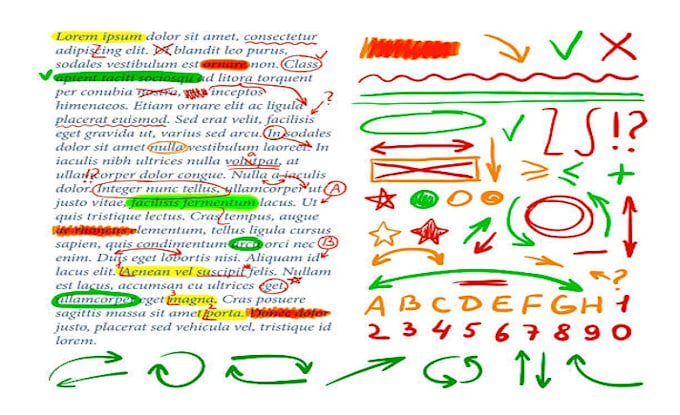 Lorem ipsum dolor sit amet, consectetur
adipiscing elit. Ut blandit leo purus,
sodales vestibulum est ornare non. Class
aptent taciti sociosqu ad litora torquent
per conubia nostra, inceptos
himenaeos. Etiam ornare elit ac ligula
?
placerat euismod. Sed erat velit, facilisis
eget gravida ut, varius sed arcu. In sodales
dolor sit amet nulla vestibulum laoreet. In
a
iaculis nibh ultrices nulla volutpat, at
!?
ullamcorper dolor congue. Nulla a iaculis
dolor. Integer nunc tellus, ullamcorper ut
A
justo vitae, facilisis fermentum lacus. Ut
quis tristique lectus. Cras tempus, augue
rhoncus elementum, tellus ligula cursus
sapien, quis condimentum arcu orci nec
B
enim. Duis eget lobortis nisi. Aliquam id
lacus elit. Aenean vel suscipit felis. Nullam
est lacus, accumsan eu ultrices eget,
3
ullamcorper eget magna. Cras posuere
2
sagittis massa sit amet porta. Donec dolor
justo, placerat sed vehicula vel, tristique id
lorem.
!?
≥ ≤ +
?
A B C D E F G H 1
2 3 4 5 6 7 8 9 0